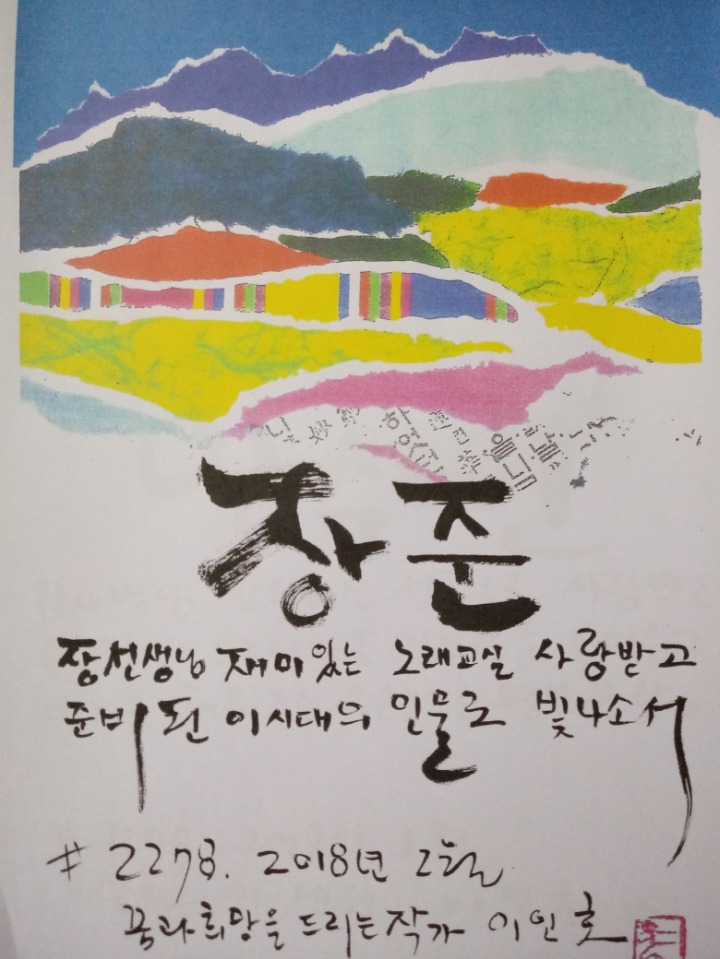 장준
장선생님 재미있는 노래교실 사랑받고
준비된 이시대의 인물로 빛나소서
# 2278. 2018년 2월
꿈과희망을 드리는작가 이인호